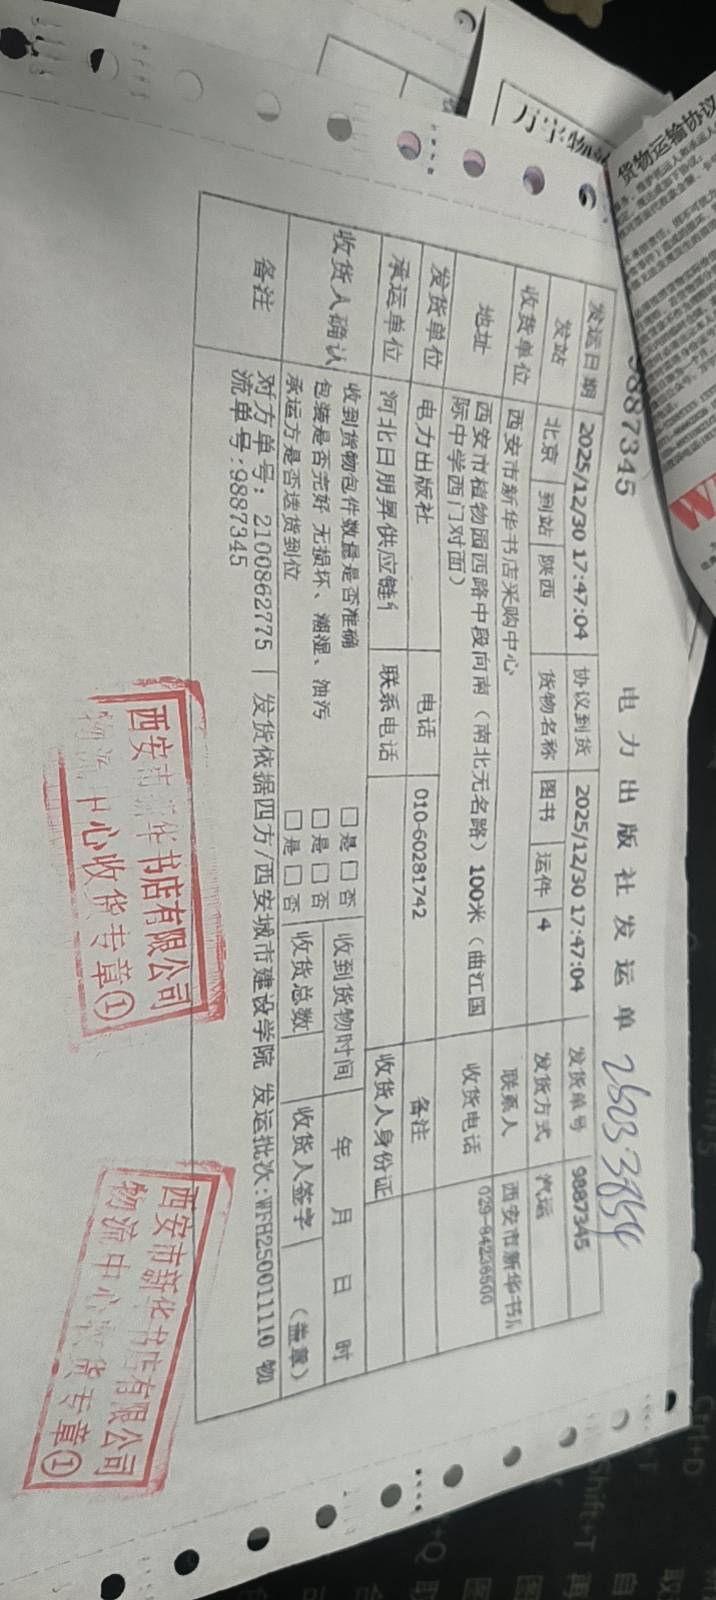 电力出版社发运单
9887345
2623·3854
发运日期 2025/12/30 17:47:04 协议到货 2025/12/30 17:47:04 发货单号 9887345
发站 北京 到站 陕西 货物名称 图书 运件 4 发货方式 汽运
收货单位 西安市新华书店采购中心 联系人 西安市新华书
地址 西安市植物园西路中段向南（南北无名路）100米（曲江国
际中学西门对面） 收货电话 029-84236500
发货单位 电力出版社 电话 010-60281742 备注
承运单位 河北日朋昇供应链 联系电话 收货人身份证
收货人确认 收到货物包件数量是否准确 □是 □否 收到货物时间 年 月 日 时
包装是否完好 无损坏、潮湿、油污 □是 □否
承运方是否送货到位 □是 □否 收货总数 收货人签字 （盖章）
备注 对方单号：2100862775 | 发货依据四方/西安城市建设学院 发运批次:WFH250011110 物
流单号:9887345
西安市新华书店有限公司
物流中心收货专章①
西安市新华书店有限公司
物流中心收货专章①
货物运输协议
万宇物
Ctrl+D
Shift+T